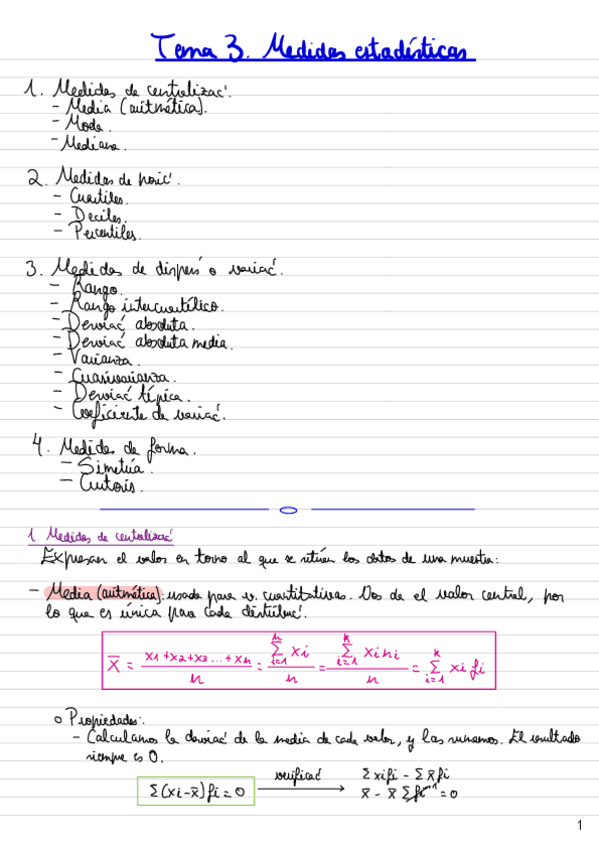 Tema 3. Medidas estadísticas
1. Medidas de centralizac'.
- Media (aritmética).
- Moda.
- Mediana.
2. Medidas de posic'.
- Cuartiles.
- Deciles.
- Percentiles.
3. Medidas de dispers' o variac'.
- Rango.
- Rango intercuartílico.
- Desviac' absoluta.
- Desviac' absoluta media.
- Varianza.
- Cuasivarianza.
- Desviac' típica.
- Coeficiente de variac'.
4. Medidas de forma.
- Simetría.
- Curtosis.
1. Medidas de centralizac'
Expresan el valor en torno al que se sitúan los datos de una muestra:
- Media (aritmética): usada para v. cuantitativas. Dos de el valor central, por
lo que es única para cada distribuc'.
x̄ = (x1 + x2 + x3 ... + xn)/n = (Σ_{i=1}^{n} xi)/n = (Σ_{i=1}^{k} xi ni)/n = Σ_{i=1}^{k} xi fi
o Propiedades:
- Calculamos la desviac' de la media de cada valor, y las sumamos. El resultado
siempre es 0.
Σ(xi - x̄) fi = 0 verificac' → Σ xi fi - Σ x̄ fi
x̄ - x̄ Σ fi 1 = 0
1